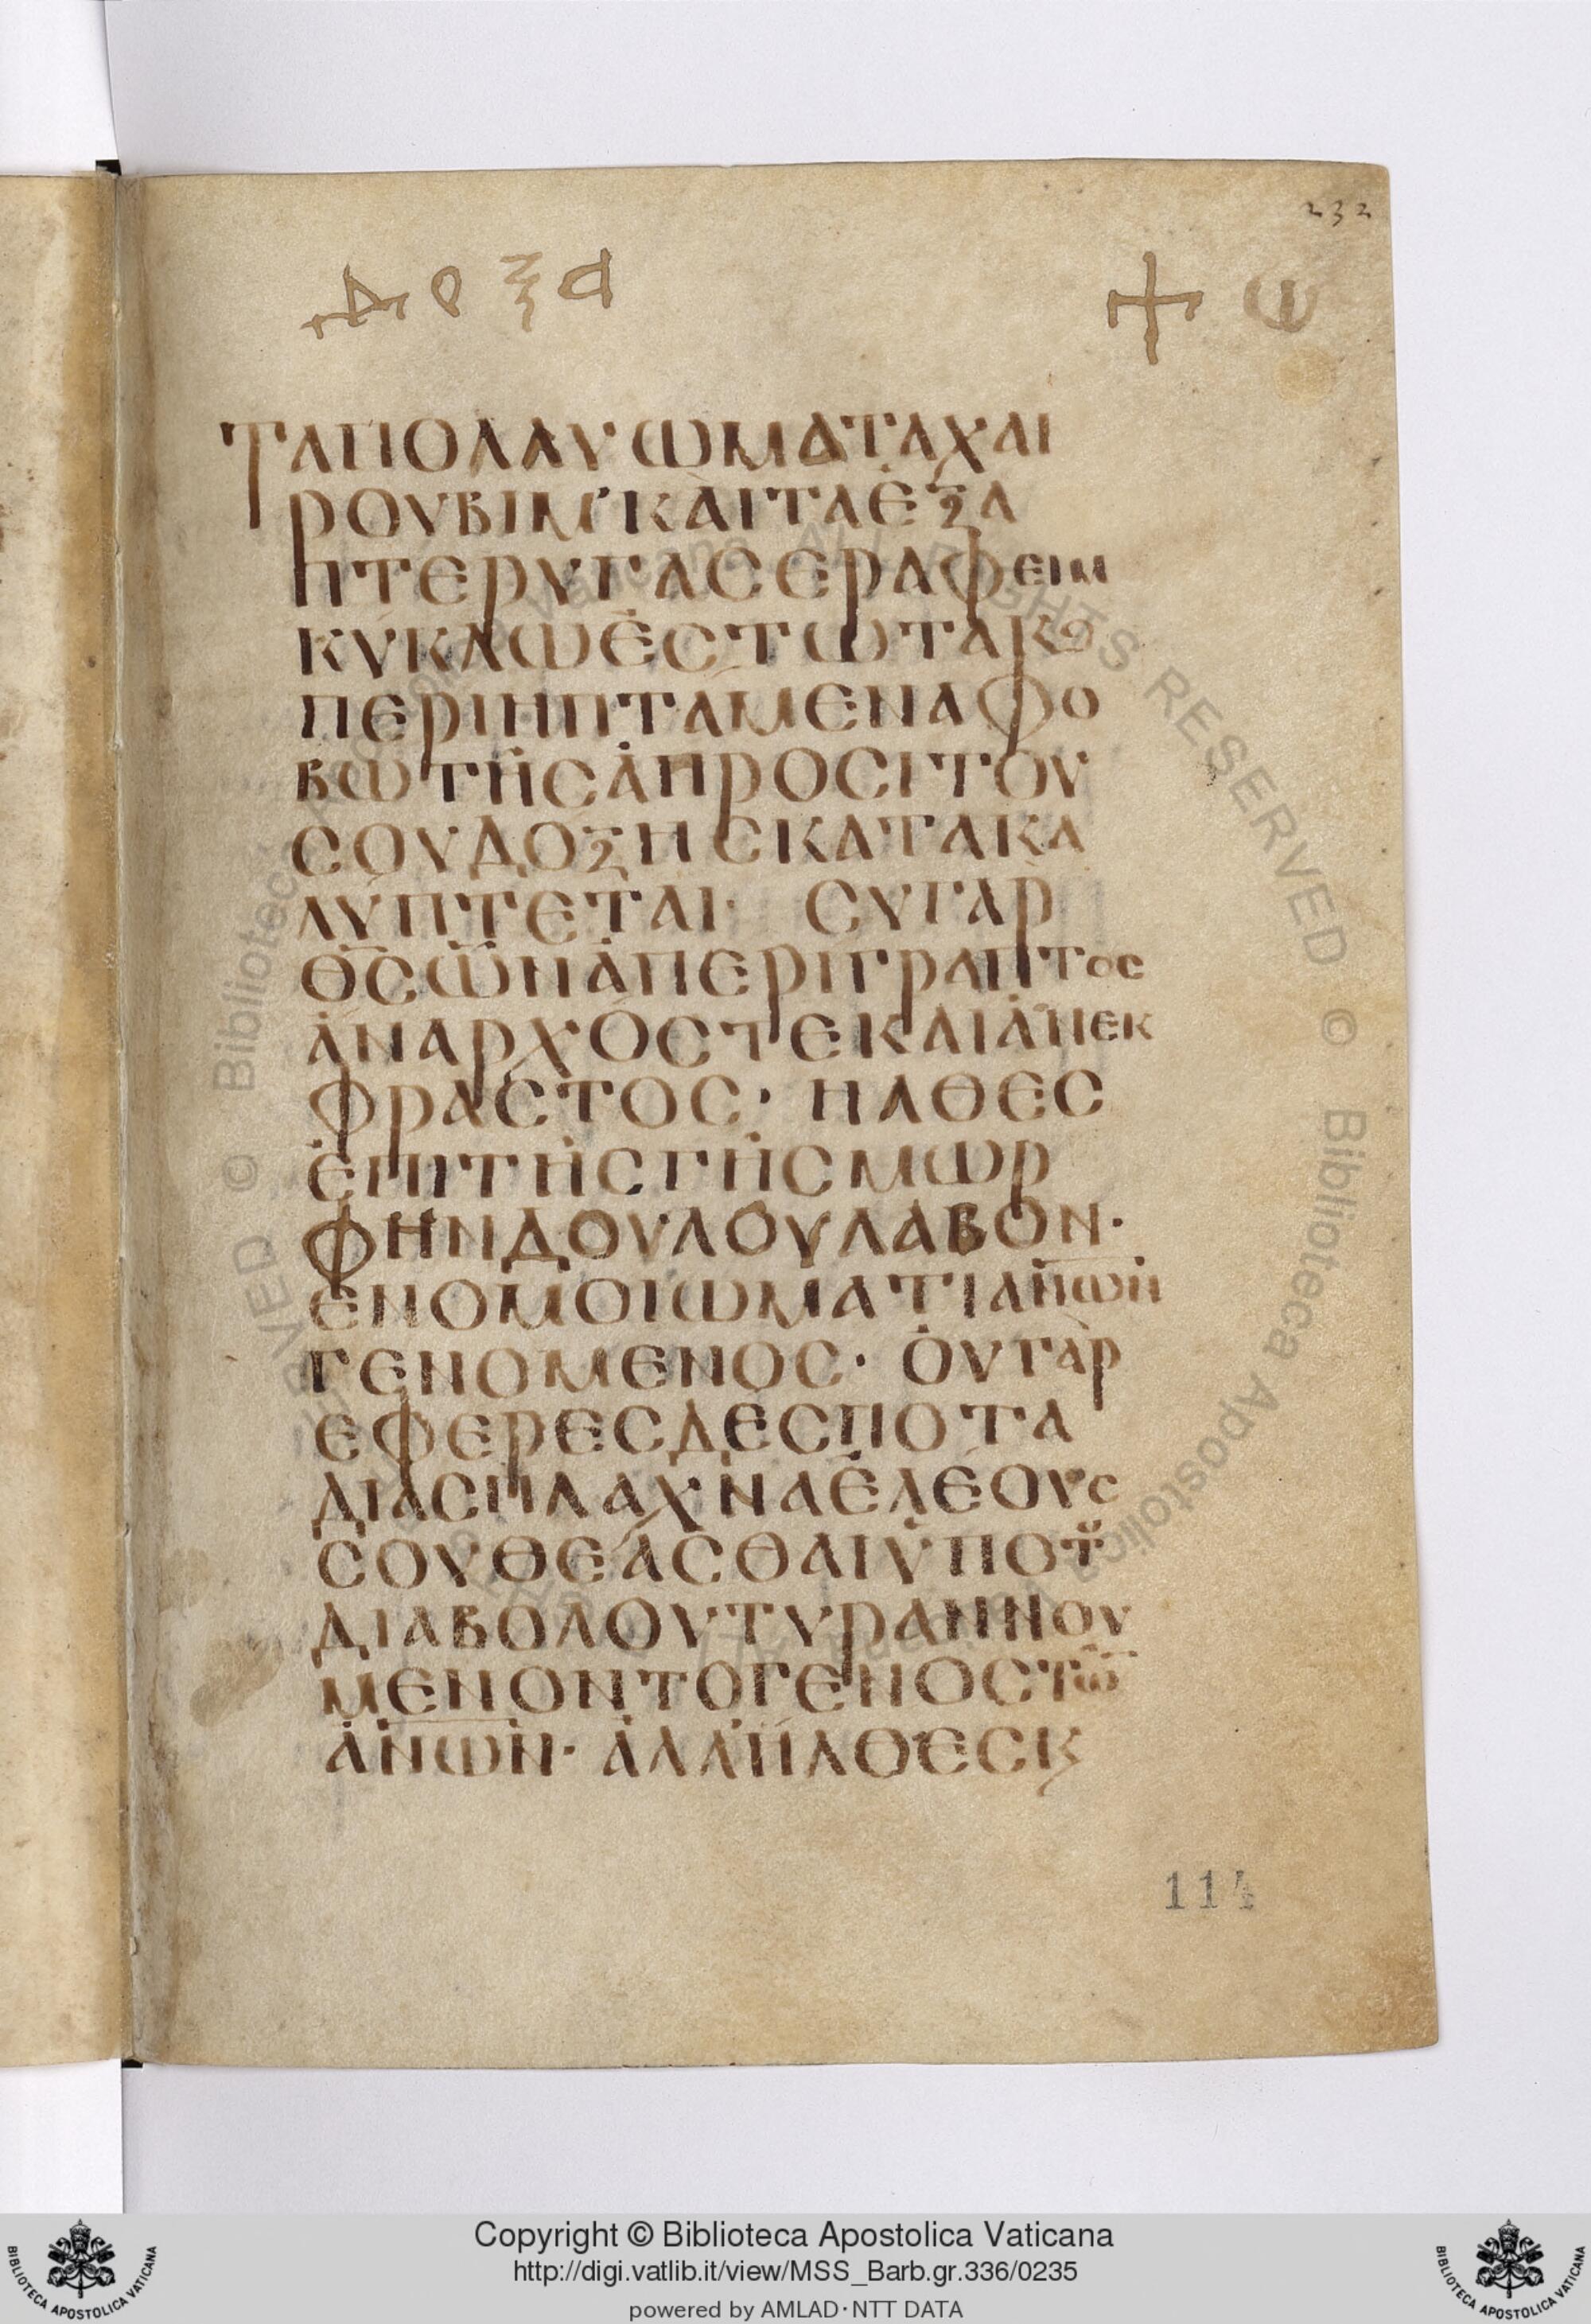 232
ΔΟΞΑ + Ѡ
ΤΑΠΟΛΛΥΩΜΑΤΑΧΑΙ
ΡΟΥΒΙΜ ΚΑΙΤΑΕΞΑ
ΠΤΕΡΥΓΑΣΕΡΑΦΕΙΜ
ΚΥΚΛΩΕΣΤΩΤΑΚϚ
ΠΕΡΙΗΠΤΑΜΕΝΑΦΟ
ΒΩΤΗΣΑΠΡΟΣΙΤΟΥ
ΣΟΥΔΟΞΗΣΚΑΤΑΚΑ
ΛΥΠΤΕΤΑΙ· ΣΥΓΑΡ
Θ̅Σ̅ΩΝΑΠΕΡΙΓΡΑΠΤΟΣ
ΑΝΑΡΧΟΣΤΕΚΑΙΑΝΕΚ
ΦΡΑΣΤΟΣ· ΗΛΘΕΣ
ΕΠΙΤΗΣΓΗΣΜΩΡ
ΦΗΝΔΟΥΛΟΥΛΑΒΟΝ·
ΕΝΟΜΟΙΩΜΑΤΙΑ̅Ν̅Ω̅Ν̅
ΓΕΝΟΜΕΝΟΣ· ΟΥΓΑΡ
ΕΦΕΡΕΣΔΕΣΠΟΤΑ
ΔΙΑΣΠΛΑΧΝΑΕΛΕΟΥΣ
ΣΟΥΘΕΑΣΘΑΙΥΠΟΤȢ
ΔΙΑΒΟΛΟΥΤΥΡΑΝΝΟΥ
ΜΕΝΟΝΤΟΓΕΝΟΣΤΩ̅
Α̅Ν̅Ω̅Ν̅· ΑΛΛΗΛΘΕΣΚϗ
114
© Biblioteca Apostolica Vaticana ALL RIGHTS RESERVED
Copyright © Biblioteca Apostolica Vaticana
http://digi.vatlib.it/view/MSS_Barb.gr.336/0235
powered by AMLAD·NTT DATA
BIBLIOTECA APOSTOLICA VATICANA
BIBLIOTECA APOSTOLICA VATICANA